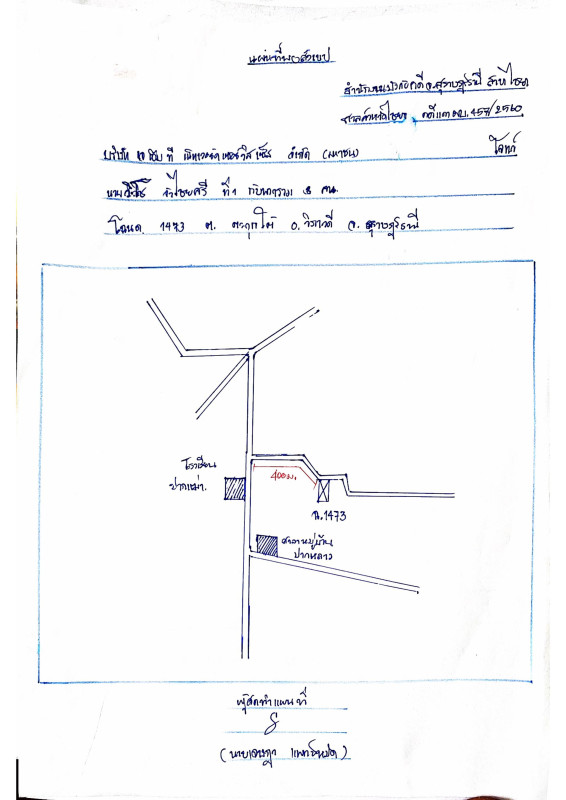 แผนที่พอสังเขป
สำนักงานบังคับคดี จ.สุราษฎร์ธานี สาขาไชยา
ศาลจังหวัดไชยา คดีแดง ผบ.457/2560
บริษัท จำกัด (มหาชน) โจทก์
นาย ที่ 1 กับพวกรวม 3 คน
โฉนด 1473 ต. ตะกุกใต้ อ. วิภาวดี จ. สุราษฎร์ธานี
โรงเรียน
ปากหมาก
400 ม.
น.1473
ศาลาหมู่บ้าน
ปากหลาว
ผู้จัดทำแผนที่